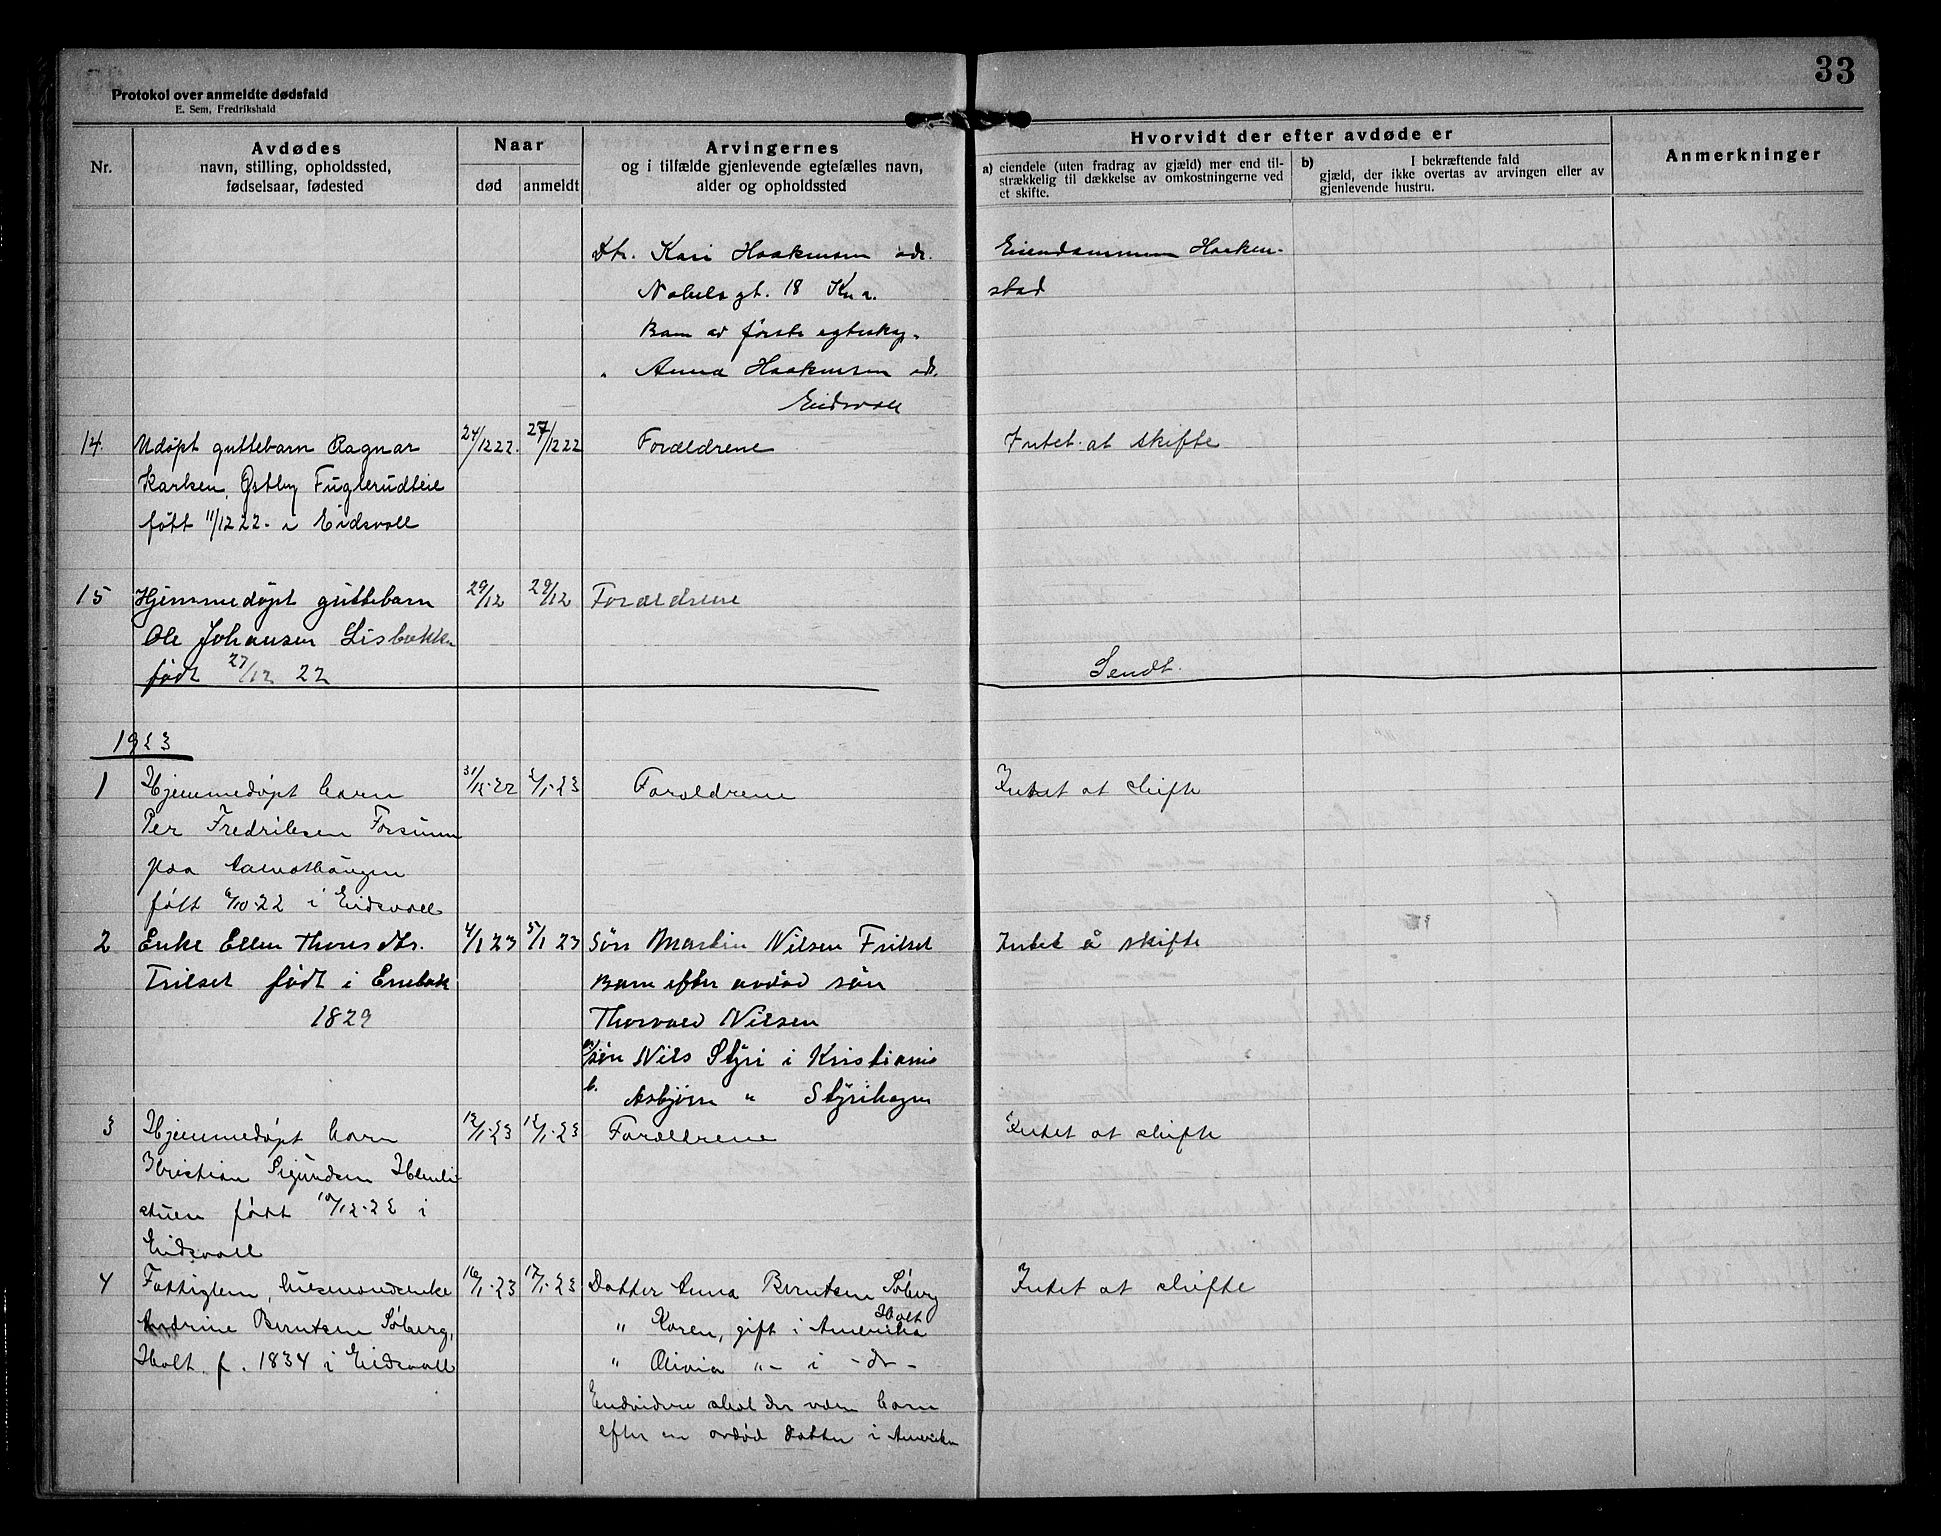 33
Protokol over anmeldte dødsfald
E. Sem, Fredrikshald
Nr.
Avdødes
navn, stilling, opholdssted,
fødselsaar, fødested
Naar
død
anmeldt
Arvingernes
og i tilfælde gjenlevende egtefælles navn,
alder og opholdssted
Hvorvidt der efter avdøde er
a) eiendele (uten fradrag av gjæld) mer end til-
strækkelig til dækkelse av omkostningerne ved
et skifte.
b) I bekræftende fald
gjæld, der ikke overtas av arvingen eller av
gjenlevende hustru.
Anmerkninger
Dtr. Kari Haakensen adr.
Nobelsgt. 18 Kr.a.
Barn av første egteskap.
" Anna Haakensen adr.
Eidsvoll
Eiendommen Haaken-
stad
14. Udøpt guttebarn Ragnar 24/12 22. 27/12 22 Forældrene Intet at skifte
Karlsen, Østby Fuglerudteie
født 11/12 22. i Eidsvoll
15 Hjemmedøpt guttebarn 29/12 29/12 Forældrene
Ole Johansen Lisbakken
født 27/12 22
Sendt.
1923
1 Hjemmedøpt barn 31/12-22 2/1-23 Forældrene Intet at skifte
Per Fredriksen
paa
født 6/10-22 i Eidsvoll
2 Enke Ellen Thorsdtr. 4/1 23 5/1 23 Søn Martin Nilsen Trilset Intet å skifte
Trilset født i Enebak Barn efter avdød søn
1829 Thorvald Nilsen
a/ søn Nils Styri i Kristiania
b. Asbjørn " Styrihagen
3 Hjemmedøpt barn 12/1-23 15/1-23 Forældrene Intet at skifte
Kristian Sigundsen Holmli
stuen født 10/12-22 i
Eidsvoll
4 Fattiglem, husmandsenke 16/1-23 17/1-23 Datter Anna Berntsen Søberg Intet at skifte
Holt
Andrine Berntsen Søberg, " Karen, gift i Amerika
Holt f. 1834 i Eidsvoll " Olivia "- i -do-
Endvidere skal der være barn
efter en avdød datter i Amerika